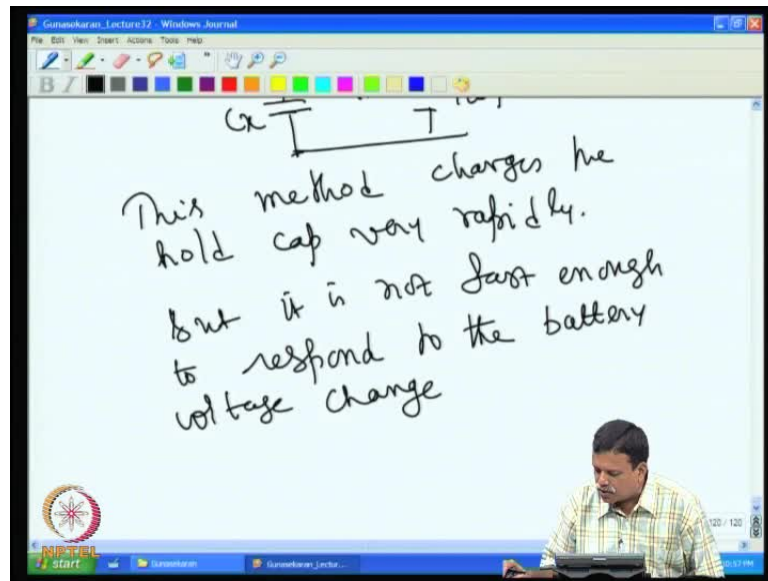 Gunasekaran_Lecture32 - Windows Journal
File Edit View Insert Actions Tools Help
B I
Cx
This method charges the
hold cap very rapidly.
but it is not fast enough
to respond to the battery
voltage change
NPTEL
120 / 120
start
Gunasekaran
Gunasekaran_Lectur...
10:57 PM